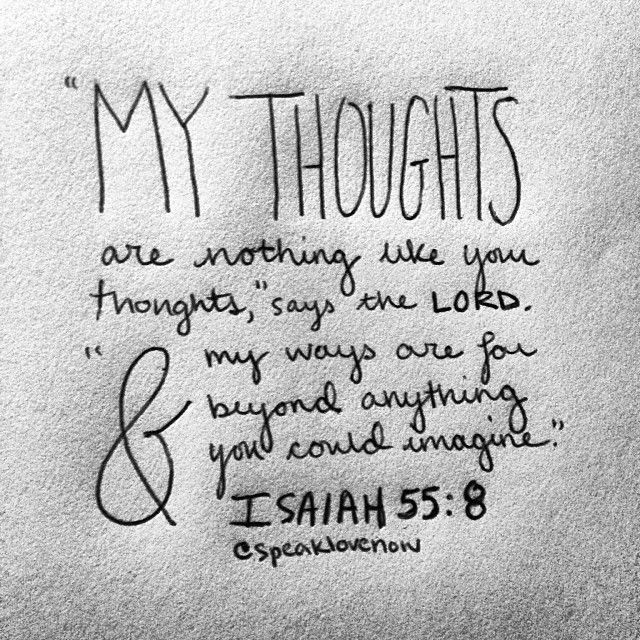 "MY THOUGHTS
are nothing like your
thoughts," says the LORD.
"& my ways are far
beyond anything
you could imagine."
ISAIAH 55:8
@speaklovenow